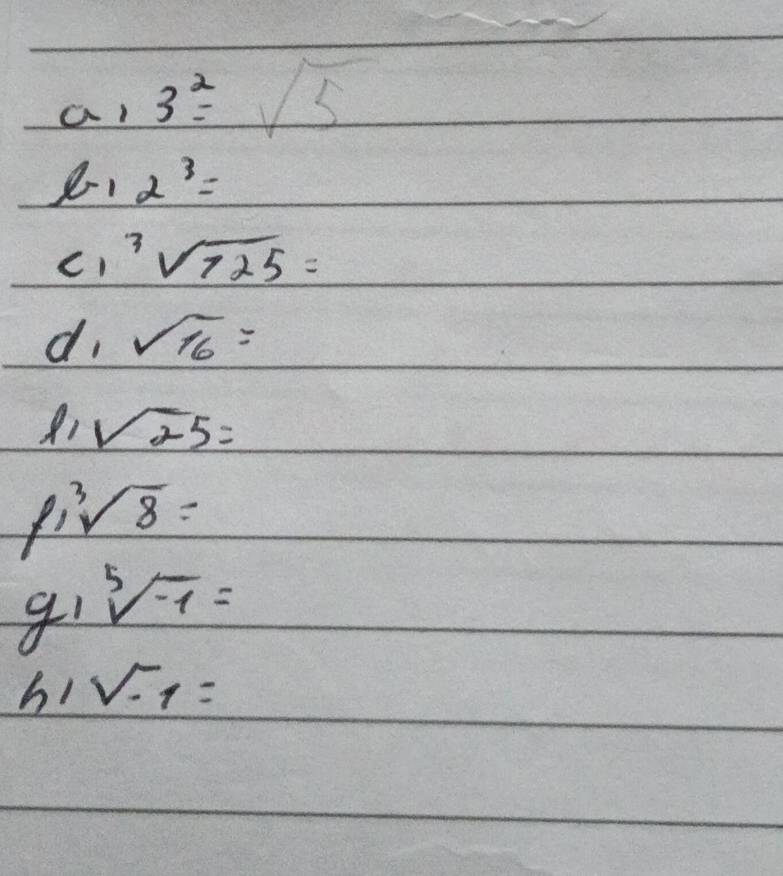 a, 3² = √5
b, 2³ =
c, ³√125 =
d, √16 =
e, √25 =
f, ³√8 =
g, ⁵√-1 =
h, √-1 =